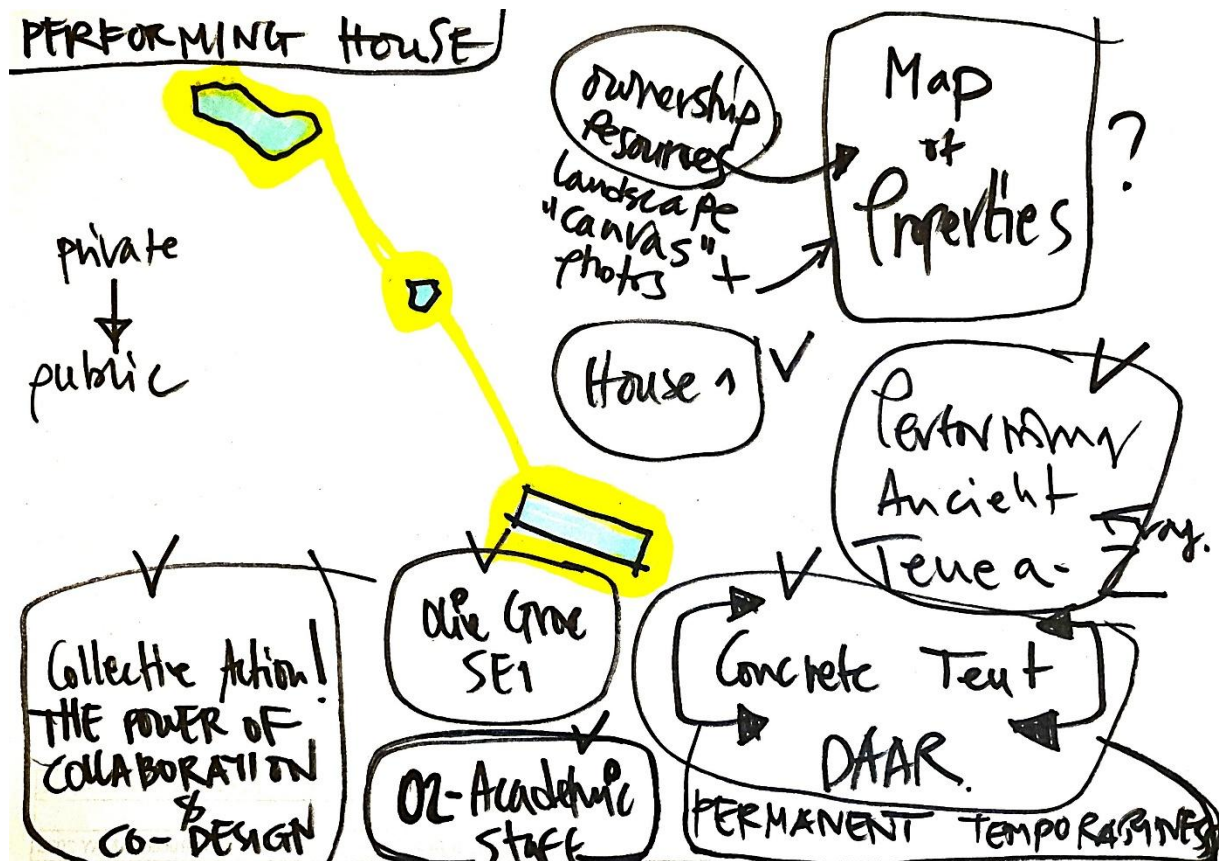 PERFORMING HOUSE
private
public
ownership
Resources
landscape
"canvas"
photos +
Map
of
Properties
?
House 1
Performing
Ancient
Tenea-
Collective Action!
THE POWER OF
COLLABORATION
&
CO-DESIGN
Olive Grove
SE1
02-Academic
Staff
Concrete Tent
DAAR.
PERMANENT TEMPORARINESS